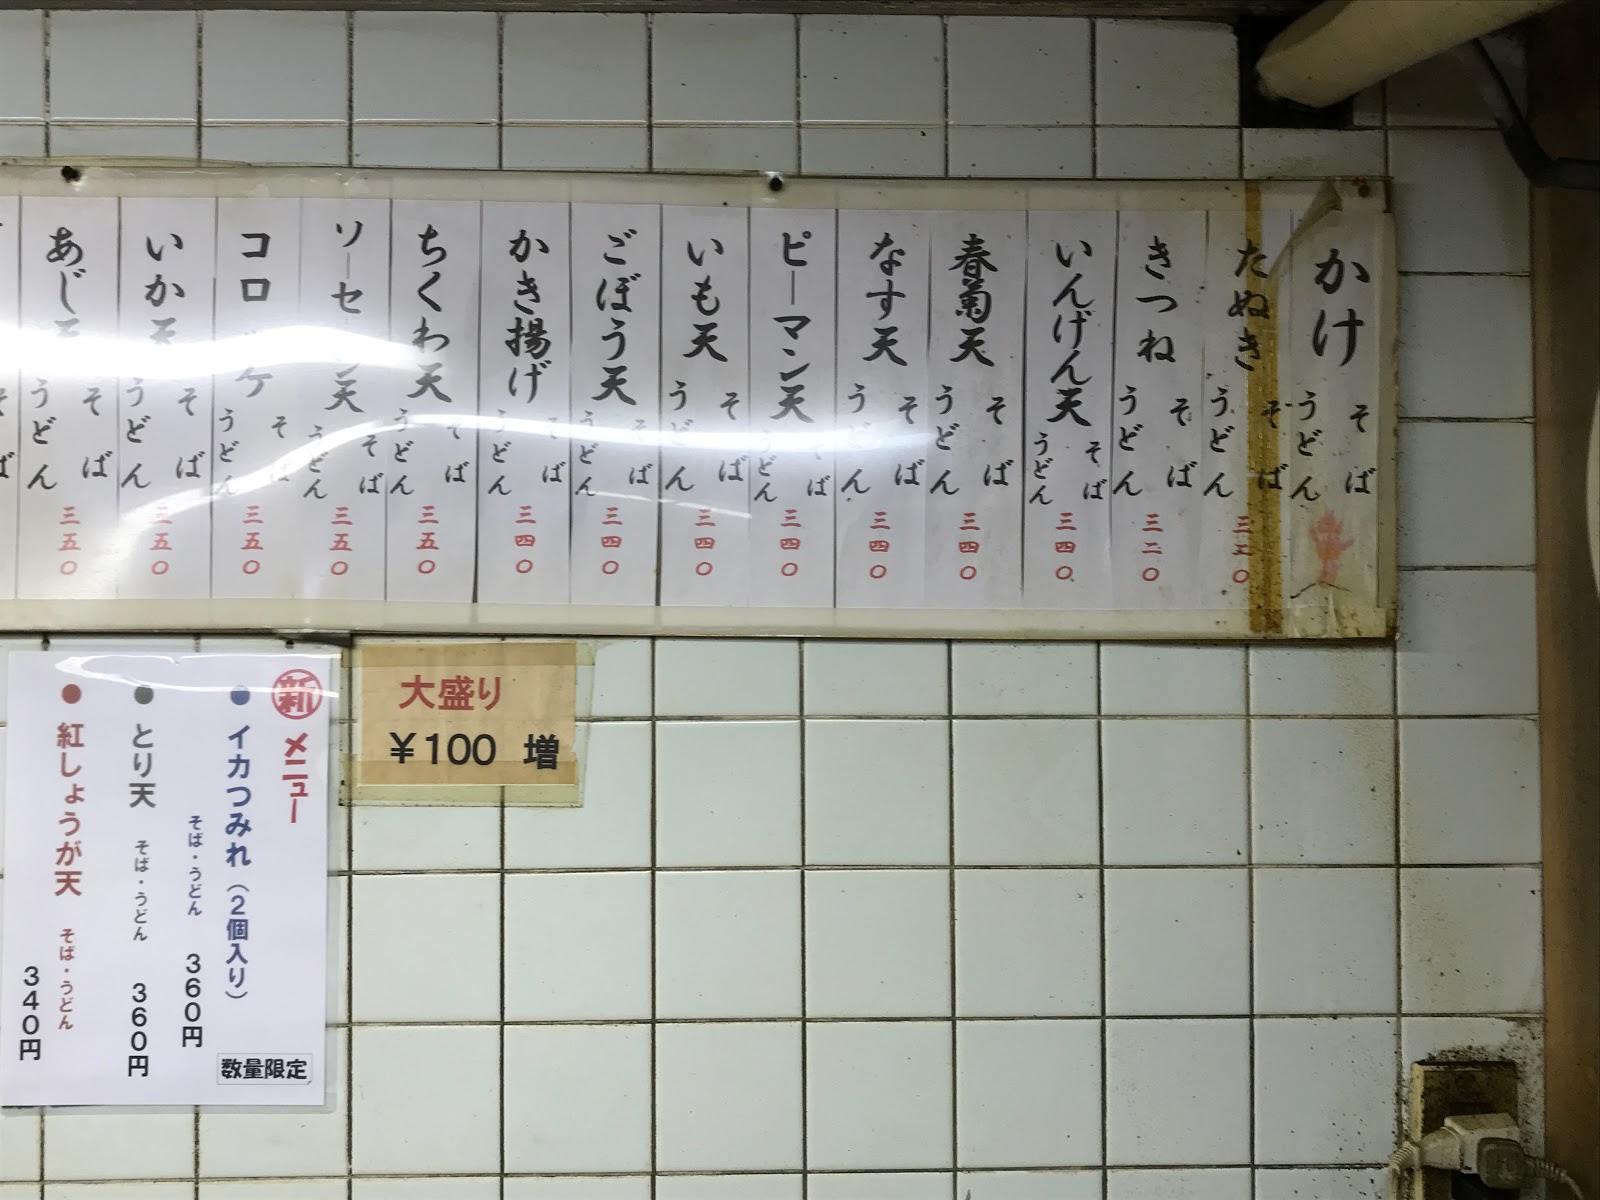 かけ そば うどん
たぬき そば うどん 三二〇
きつね そば うどん 三二〇
いんげん天 そば うどん 三四〇
春菊天 そば うどん 三四〇
なす天 そば うどん 三四〇
ピーマン天 そば うどん 三四〇
いも天 そば うどん 三四〇
ごぼう天 そば うどん 三四〇
かき揚げ そば うどん 三四〇
ちくわ天 そば うどん 三五〇
ソーセージ天 そば うどん 三五〇
コロッケ そば うどん 三五〇
いか天 そば うどん 三五〇
あじ天 そば うどん 三五〇
そば
大盛り
¥100 増
新メニュー
●イカつみれ（2個入り）
そば・うどん 360円
●とり天 そば・うどん 360円
●紅しょうが天 そば・うどん
340円
数量限定